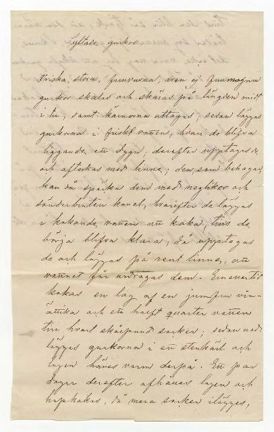 Syltade gurkor.
Friska, stora, fullvuxna, men ej fullmogna
gurkor skalas och skäras på längden midt
i tu, samt kärnorna uttagas, sedan läggas
gurkorna i friskt vatten, hvari de blifva
liggande, ett dygn, derefter upptagas de
och aftorkas med linne; den som behagar
kan då spicka dem med neglikor och
sönderbruten kanel, hvarefter de läggas
i kokande vatten att koka, tills de
börja blifva klara; då upptagas
de och läggas på rent linne, att
vattnet får utdragas dem. Emellertid
kokas en lag af en jumfru vin-
ättika och ett halft quarter vatten
till hvart skålpund socker; sedan ned
läggas gurkorna i en stenkärl och
lagen hälles varm derpå. Ett par
dagar derefter afhälles lagen och
uppkokas, då mera socker ilägges,